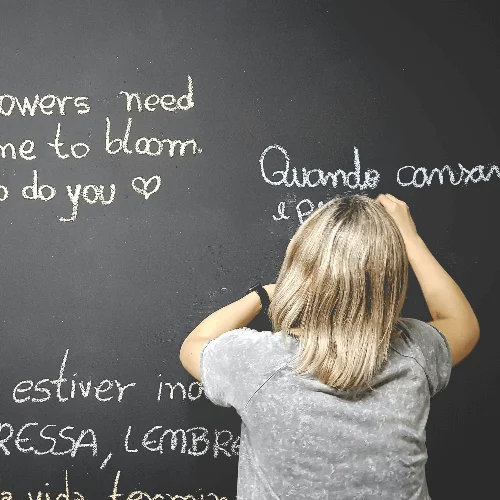 owers need
me to bloom.
o do you ♡
Quando cansar
e p
estiver ino
RESSA, LEMBRE
a vida termin